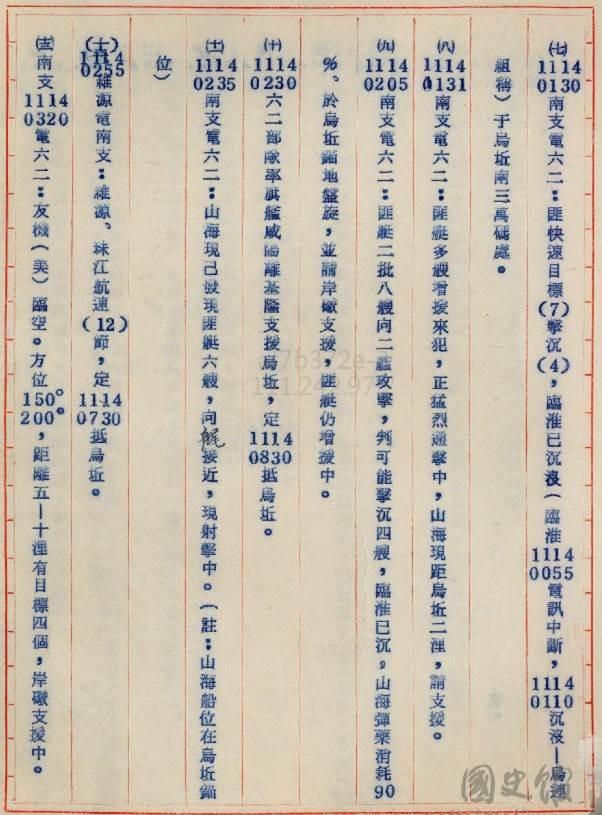 ㈦1114 0130南支電六二：匪快速目標(7)擊沉(4)，臨淮已沉沒(臨淮1114 0055電訊中斷，1114 0110沉沒—烏連
組稱)于烏坵南三萬碼處。
㈧1114 0131南支電六二：匪艇多艘增援來犯，正猛烈還擊中，山海現距烏坵二浬，請支援。
㈨1114 0205南支電六二：匪艇二批八艘向二艦攻擊，判可能擊沉四艘，臨淮已沉，山海彈藥消耗90
%、於烏坵錨地盤旋，並請岸礮支援，匪艇仍增援中。
㈩1114 0230六二部隊率旗艦咸陽離基隆支援烏坵，定1114 0830抵烏坵。
(十一)1114 0235南支電六二：山海現已發現匪艇六艘，向艉接近，現射擊中。(註：山海船位在烏坵錨
位)
(十二)1114 0255維源電南支：維源、珠江航速(12)節，定1114 0730抵烏坵。
(十三)南支1114 0320電六二：友機(美)臨空。方位150° 200°，距離五—十浬有目標四個，岸礮支援中。
國史館